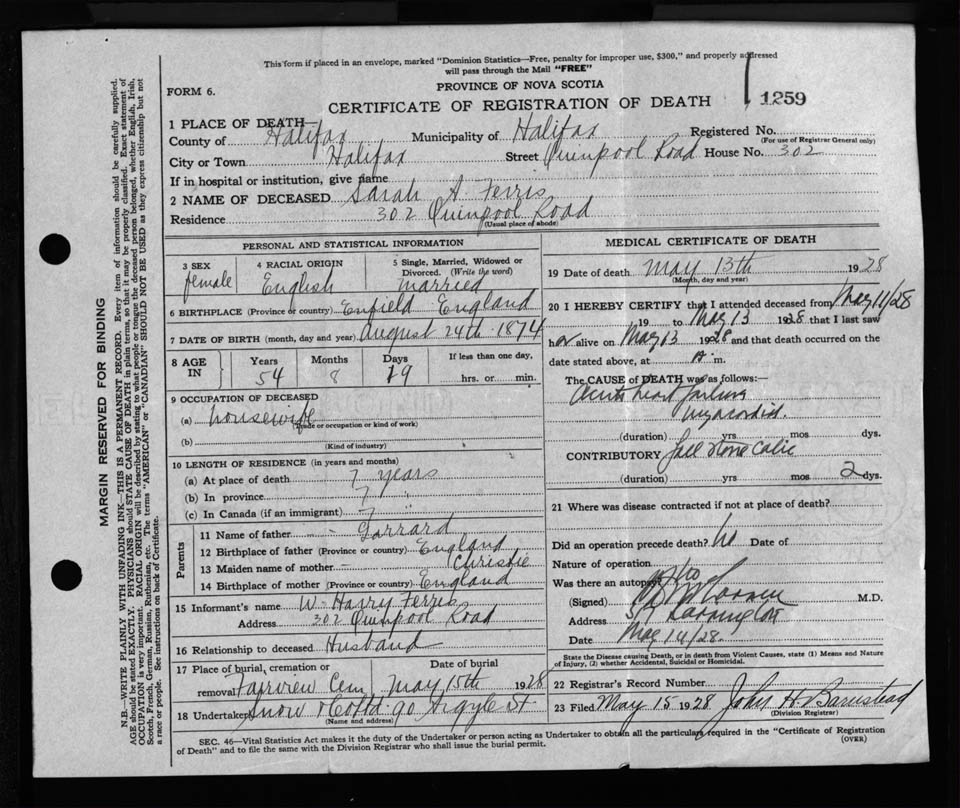 This form if placed in an envelope, marked "Dominion Statistics—Free, penalty for improper use, $300," and properly addressed
will pass through the Mail "FREE"
PROVINCE OF NOVA SCOTIA
FORM 6.
CERTIFICATE OF REGISTRATION OF DEATH 1259
1 PLACE OF DEATH
County of Halifax Municipality of Halifax Registered No.
(For use of Registrar General only)
City or Town Halifax Street Quinpool Road House No. 302
If in hospital or institution, give name
2 NAME OF DECEASED Sarah A. Ferris
Residence 302 Quinpool Road
(Usual place of abode)
PERSONAL AND STATISTICAL INFORMATION
3 SEX female
4 RACIAL ORIGIN English
5 Single, Married, Widowed or Divorced. (Write the word) Married
6 BIRTHPLACE (Province or country) Enfield England
7 DATE OF BIRTH (month, day and year) August 24th 1874
8 AGE IN Years Months Days If less than one day,
54 8 19 hrs. or min.
9 OCCUPATION OF DECEASED
(a) housewife
(Trade or occupation or kind of work)
(b)
(Kind of industry)
10 LENGTH OF RESIDENCE (in years and months)
(a) At place of death 7 years
(b) In province 7 "
(c) In Canada (if an immigrant) 7
Parents
11 Name of father - - Garrard
12 Birthplace of father (Province or country) England
13 Maiden name of mother Christie
14 Birthplace of mother (Province or country) England
15 Informant's name W. Harry Ferris
Address 302 Quinpool Road
16 Relationship to deceased Husband
17 Place of burial, cremation or removal Fairview Cem
Date of burial May 15th 1928
18 Undertaker Snow & Co Ltd 90 Argyle St
(Name and address)
MEDICAL CERTIFICATE OF DEATH
19 Date of death May 13th 1928
(Month, day and year)
20 I HEREBY CERTIFY that I attended deceased from May 11/28
19 to May 13 1928 that I last saw
her alive on May 13 1928 and that death occurred on the
date stated above, at m.
The CAUSE of DEATH was as follows:—
Acute heart failure
(duration) yrs mos dys.
CONTRIBUTORY Gall stone Colic
(duration) yrs mos 2 dys.
21 Where was disease contracted if not at place of death?
Did an operation precede death? No Date of
Nature of operation
Was there an autopsy? No
(Signed) M.D.
Address
Date May 14/28.
State the Disease causing Death, or in death from Violent Causes, state (1) Means and Nature
of Injury, (2) whether Accidental, Suicidal or Homicidal.
22 Registrar's Record Number
23 Filed May 15 1928 John H. Barnstead
(Division Registrar)
SEC. 46—Vital Statistics Act makes it the duty of the Undertaker or person acting as Undertaker to obtain all the particulars required in the "Certificate of Registration
of Death" and to file the same with the Division Registrar who shall issue the burial permit.
(OVER)
MARGIN RESERVED FOR BINDING
N.B.—WRITE PLAINLY WITH UNFADING INK—THIS IS A PERMANENT RECORD. Every item of information should be carefully supplied.
AGE should be stated EXACTLY. PHYSICIANS should STATE CAUSE OF DEATH in plain terms, so that it may be properly classified. Exact statement of
OCCUPATION is very important. RACIAL ORIGIN will be described by stating to what people or tongue the deceased person belonged, whether English, Irish,
Scotch, French, German, Russian, Ruthenian, etc. The terms "AMERICAN" or "CANADIAN" SHOULD NOT BE USED as they express citizenship but not
a race or people. See instructions on back of Certificate.